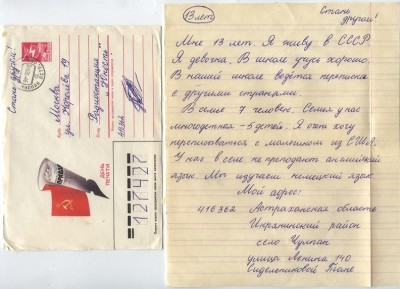 Стань другом!
Москва
ул. Королёва 19
Радиостанция
"Юность"
ПРАВДА
ДЕНЬ
ПЕЧАТИ
127427
13 лет
Стань
другом!
Мне 13 лет. Я живу в СССР
Я девочка. В школе учусь хорошо.
В нашей школе ведётся переписка
с другими странами.
В семье 7 человек. Семья у нас
многодетная – 5 детей. Я очень хочу
переписываться с мальчиком из США.
У нас в селе не преподают английский
язык. Мы изучаем немецкий язык.
Мой адрес:
416362 Астраханская область
Икрянинский район
село Чулпан
улица Ленина 140
Сиделениковой Тане